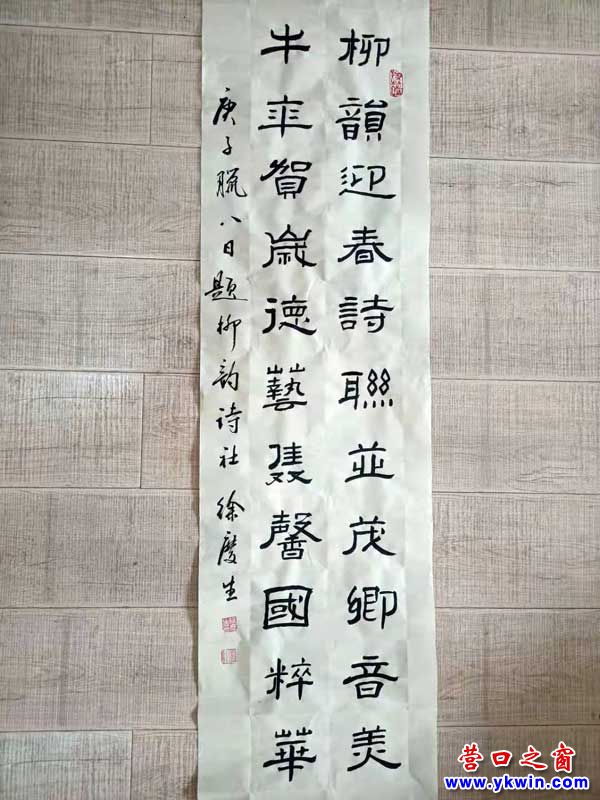 柳韻迎春詩聯並茂卿音美
牛年賀歲德藝雙馨國粹華
庚子臘八日题柳韵诗社 徐慶生
营口之窗
www.ykwin.com